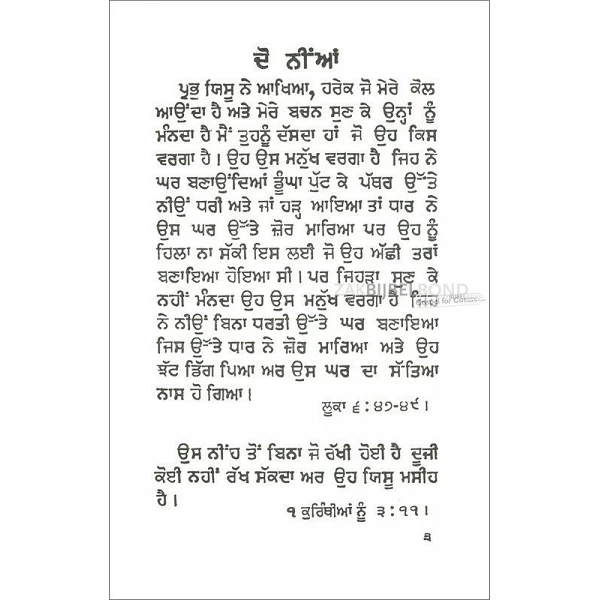 ਦੋ ਨੀਂਆਂ
ਪ੍ਰਭੁ ਯਿਸੂ ਨੇ ਆਖਿਆ, ਹਰੇਕ ਜੋ ਮੇਰੇ ਕੋਲ
ਆਉਂਦਾ ਹੈ ਅਤੇ ਮੇਰੇ ਬਚਨ ਸੁਣ ਕੇ ਉਨ੍ਹਾਂ ਨੂੰ
ਮੰਨਦਾ ਹੈ ਮੈਂ ਤੁਹਾਨੂੰ ਦੱਸਦਾ ਹਾਂ ਜੋ ਉਹ ਕਿਸ
ਵਰਗਾ ਹੈ। ਉਹ ਉਸ ਮਨੁੱਖ ਵਰਗਾ ਹੈ ਜਿਹ ਨੇ
ਘਰ ਬਣਾਉਂਦਿਆਂ ਡੂੰਘਾ ਪੁੱਟ ਕੇ ਪੱਥਰ ਉੱਤੇ
ਨੀਉਂ ਧਰੀ ਅਤੇ ਜਾਂ ਹੜ੍ਹ ਆਇਆ ਤਾਂ ਧਾਰ ਨੇ
ਉਸ ਘਰ ਉੱਤੇ ਜ਼ੋਰ ਮਾਰਿਆ ਪਰ ਉਹ ਨੂੰ
ਹਿਲਾ ਨਾ ਸੱਕੀ ਇਸ ਲਈ ਜੋ ਉਹ ਅੱਛੀ ਤਰਾਂ
ਬਣਾਇਆ ਹੋਇਆ ਸੀ। ਪਰ ਜਿਹੜਾ ਸੁਣ ਕੇ
ਨਹੀਂ ਮੰਨਦਾ ਉਹ ਉਸ ਮਨੁੱਖ ਵਰਗਾ ਹੈ ਜਿਹ
ਨੇ ਨੀਉਂ ਬਿਨਾ ਧਰਤੀ ਉੱਤੇ ਘਰ ਬਣਾਇਆ
ਜਿਸ ਉੱਤੇ ਧਾਰ ਨੇ ਜ਼ੋਰ ਮਾਰਿਆ ਅਤੇ ਉਹ
ਝੱਟ ਡਿੱਗ ਪਿਆ ਅਰ ਉਸ ਘਰ ਦਾ ਸੱਤਿਆ
ਨਾਸ ਹੋ ਗਿਆ।
ਲੂਕਾ ੬ : ੪੭-੪੯।
ਉਸ ਨੀਂਹ ਤੋਂ ਬਿਨਾ ਜੋ ਰੱਖੀ ਹੋਈ ਹੈ ਦੂਜੀ
ਕੋਈ ਨਹੀਂ ਰੱਖ ਸੱਕਦਾ ਅਰ ਉਹ ਯਿਸੂ ਮਸੀਹ
ਹੈ।
੧ ਕੁਰਿੰਥੀਆਂ ਨੂੰ ੩ : ੧੧।
੩
ZAKBIJBELBOND